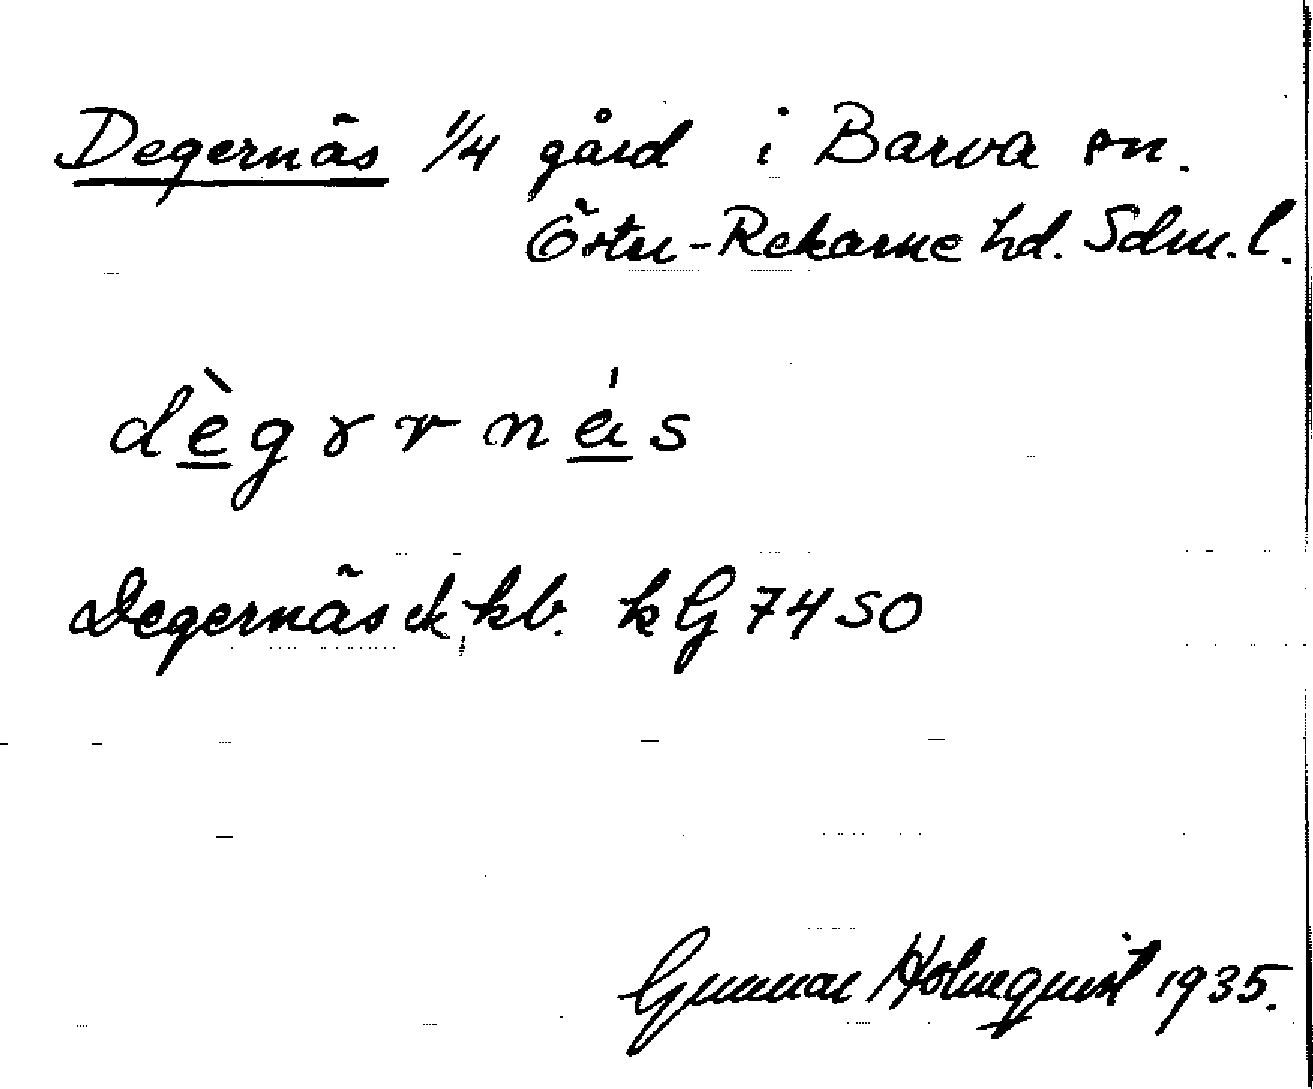 Degernäs 1/4 gård i Barva sn.
Östra-Rekarne hd. Sdm. l.
dègrrnás
Degernäs ek kb. kG 7450
Gunnar Holmquist 1935.